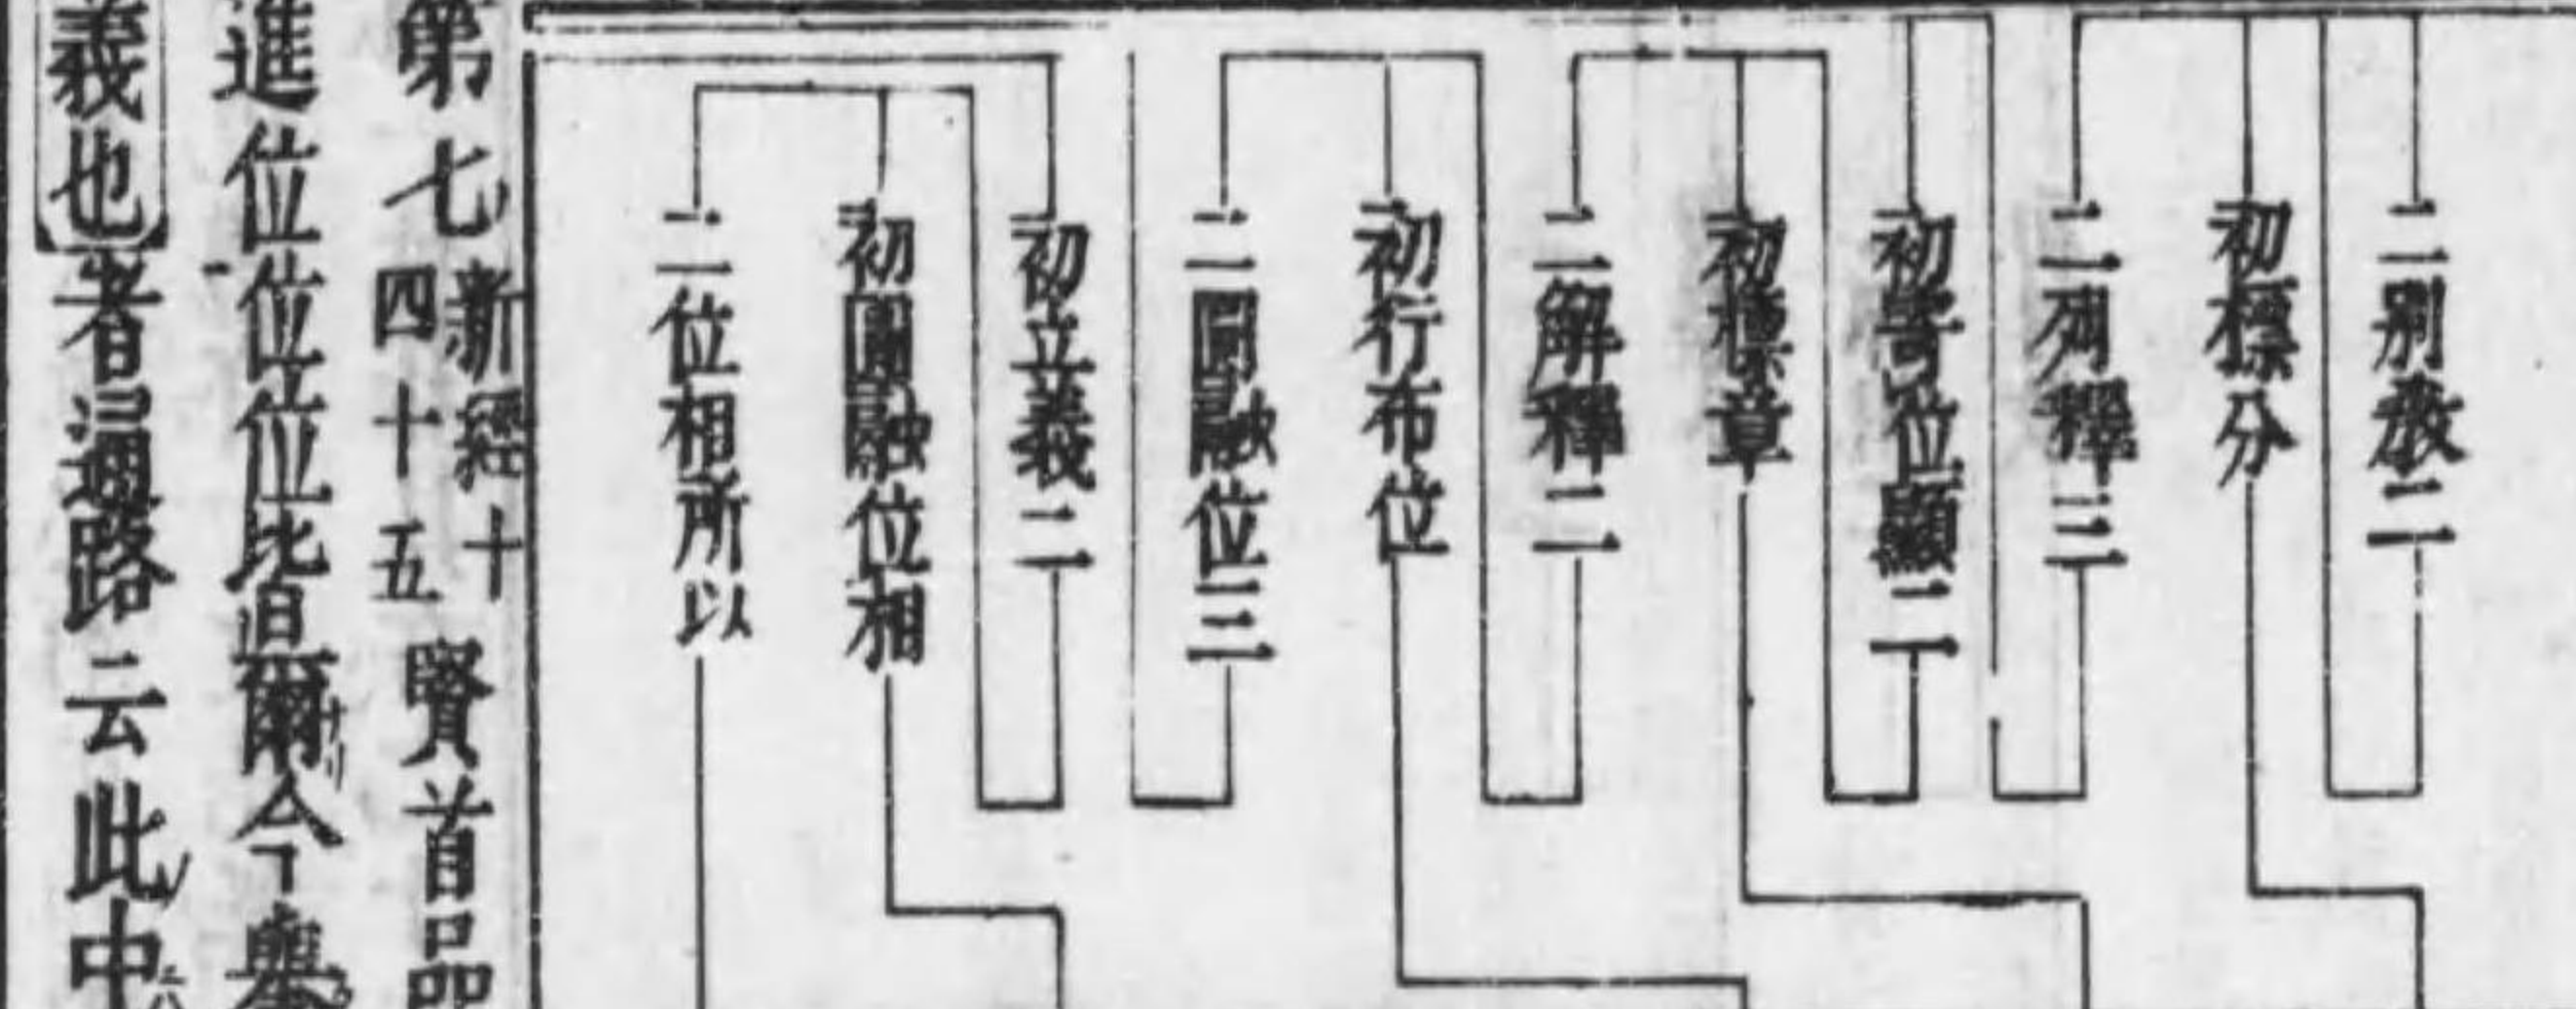 二別教二
初標分
二列釋三
初寄位顯二
初標章
二解釋二
初行布位
二圓融位三
初立義二
初圓融位相
二位相所以
第七新經十四十五賢首品
進位位位比皆爾ナリ今舉
義也者遍路云此中